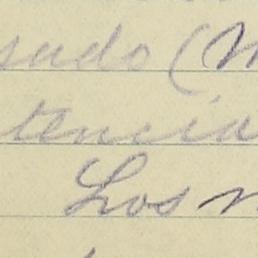 sado (M
tencia
Los n